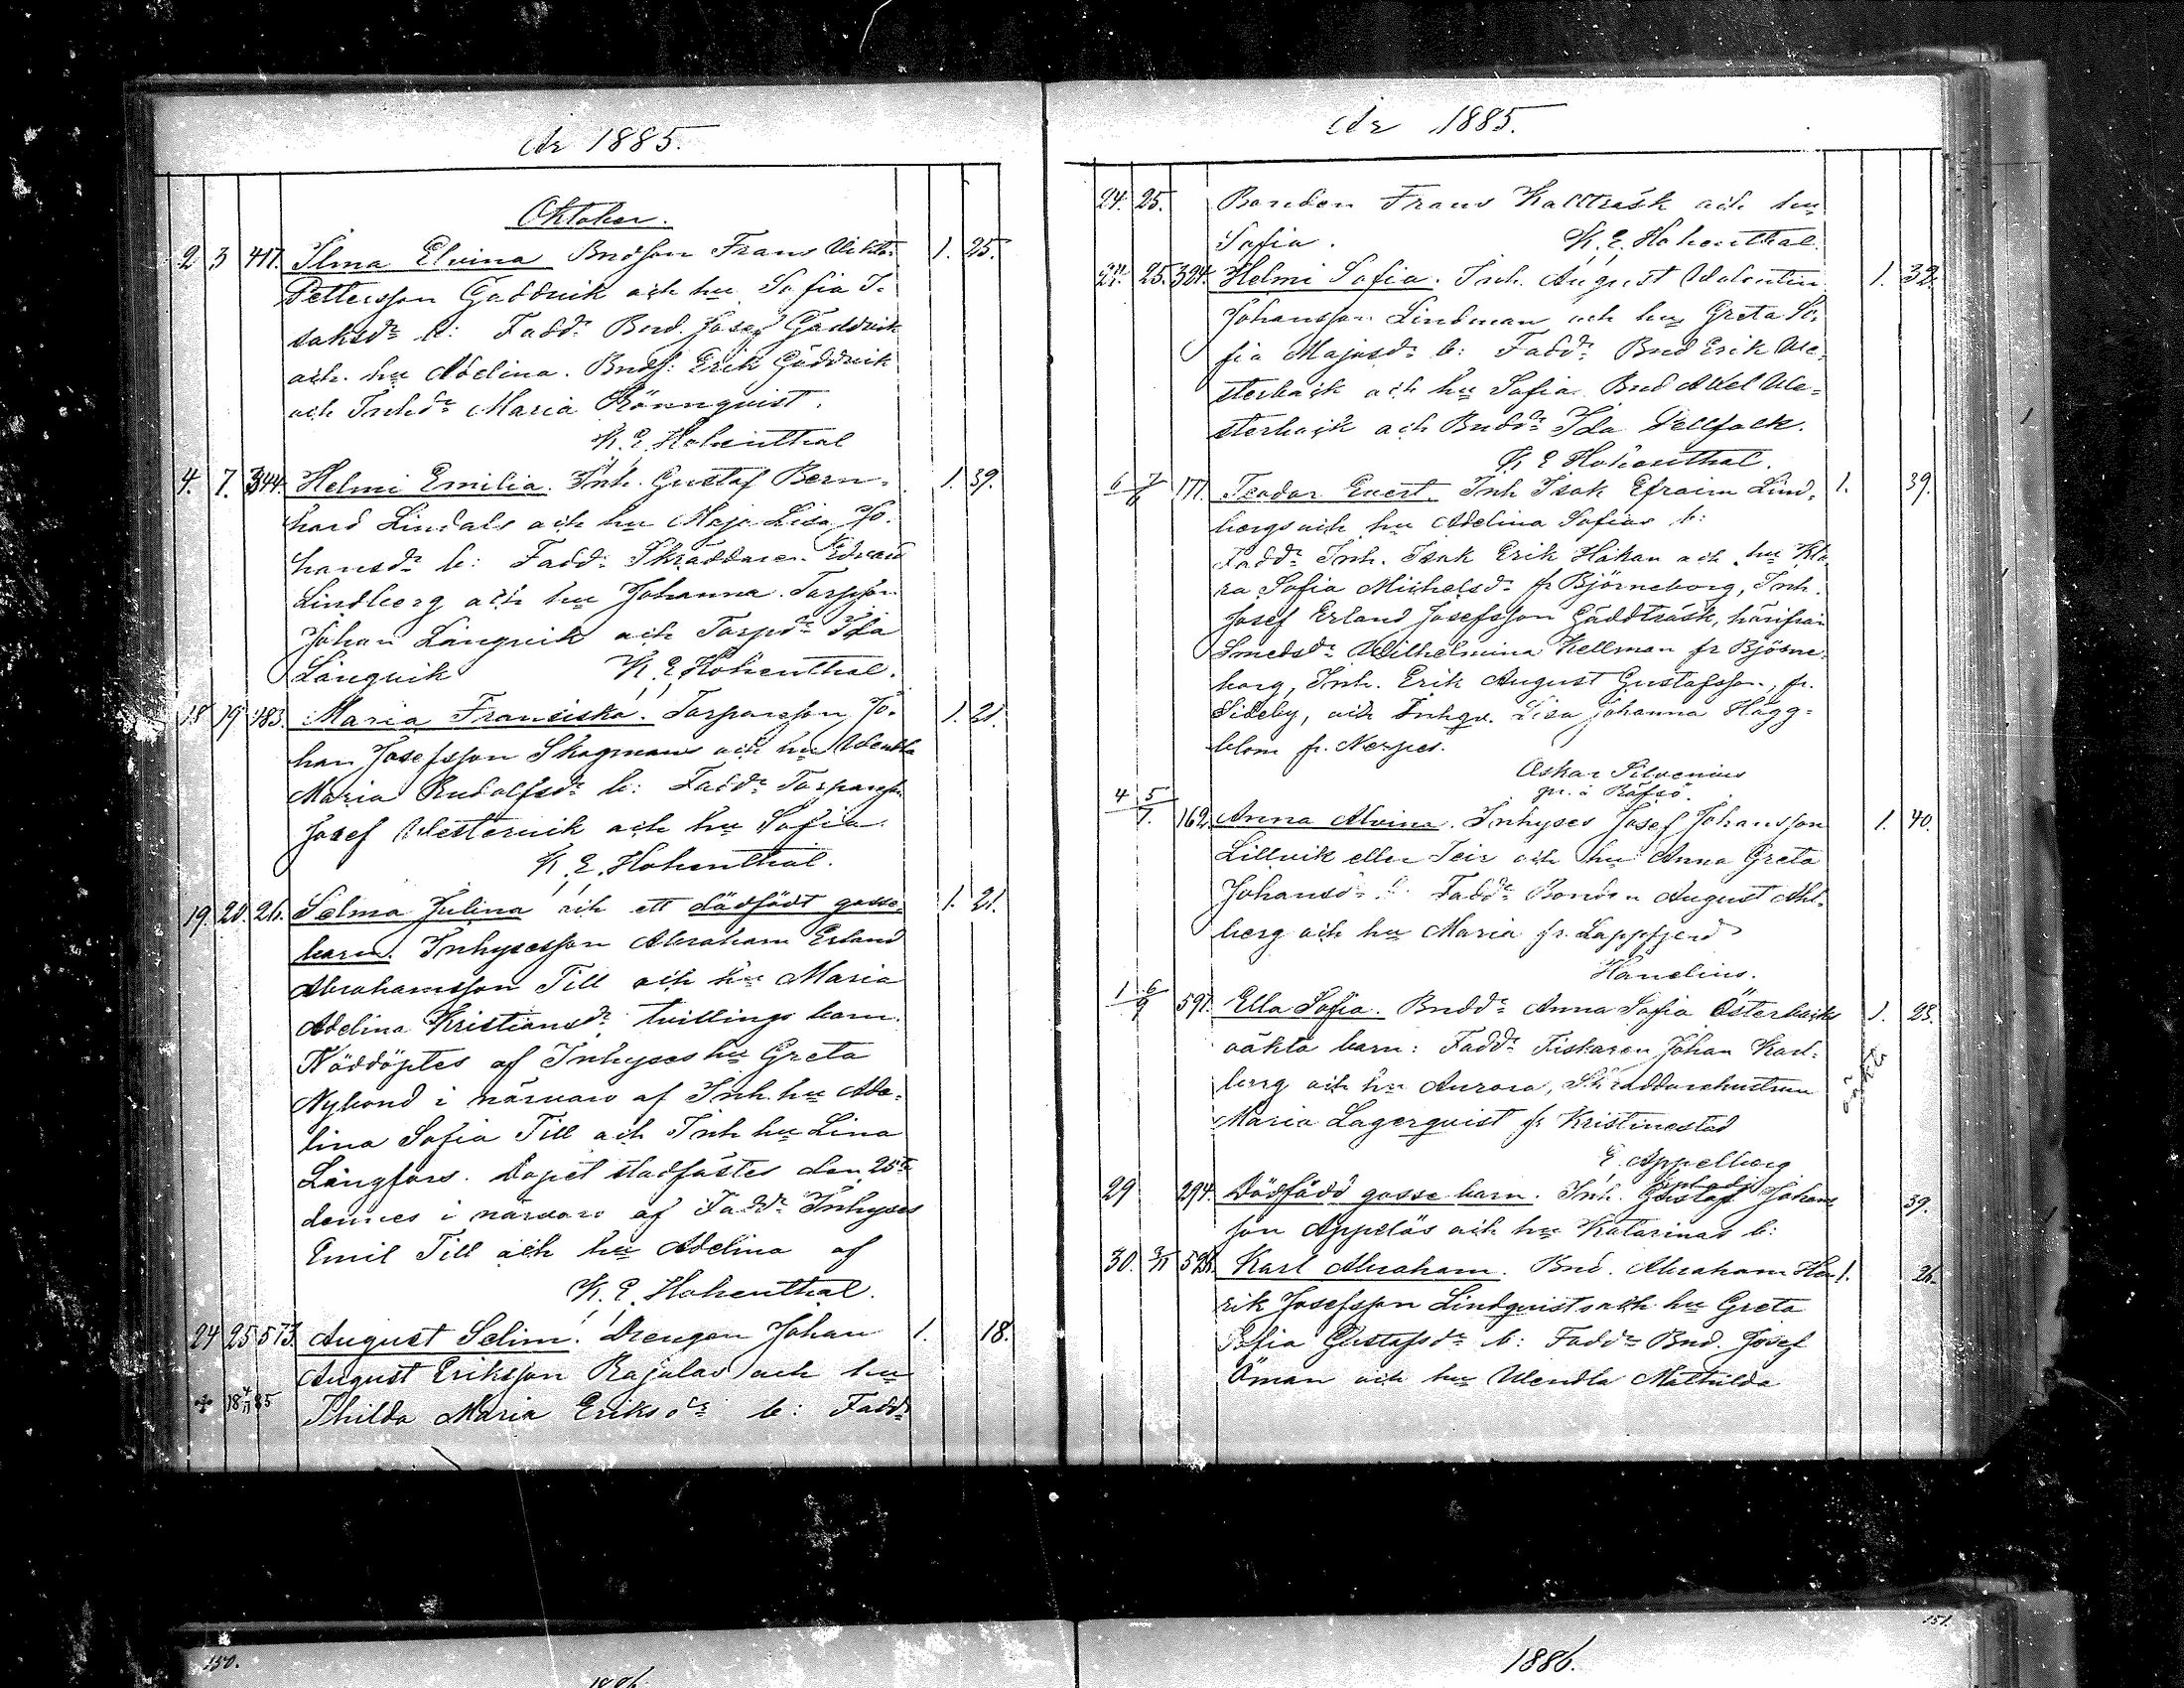 År 1885.
Oktober.
2 3 417. Ilma Elvina Bndson Frans Vikto-
Pettersson Gäddvik och hu Sofia I-
saksdr b: Faddr Bnd. Josef Gäddvik
och hu Adelina. Bnds: Erik Gäddvik
och Inhdr Maria Rönnqvist.
K. E. Hohenthal
4. 7. 344. Helmi Emilia. Inh. Gustaf Bern- 1. 39.
hard Lindals och hu Maja Lisa Jo-
hansdr b: Fadd: Skräddaren Edvard
Lindberg och hu Johanna. Torpson
Johan Långvik och Torpdr Ida
Långvik K. E. Hohenthal.
18 19 183. Maria Fransiska. Torparson Jo- 1. 21.
han Josefsson Skogmans och hu Wendla
Maria Rudolfsdr b: Faddr Torparen
Josef Westervik och hu Sofia
K. E. Hohenthal.
19. 20. 26. Selma Julina och ett dödfödt gosse- 1. 21.
barn. Inhysesson Abraham Erland
Abrahamsson Till och hu Maria
Adelina Kristiansdr tvillinge barn.
Nöddöptes af Inhyses hu Greta
Nybond i närvaro af Inh. hu Ade-
lina Sofia Till och Inh hu Lina
Långfors. Dopet stadfästes den 25te
dennes i närvaro af Faddr Inhyses
Emil Till och hu Adelina af
K. E. Hohenthal.
24 25 573. August Selim. Drengen Johan 1. 18.
August Eriksson Rajalas och hu
Thilda Maria Eriksdr b: Faddr
År 1885.
24. 25. Bonden Frans Kallträsk och hu
Sofia. K. E. Hohenthal.
25. 324. Helmi Sofia. Inh. August Valentin 1. 32.
Johansson Lindman och hu Greta So-
fia Majasdr b: Faddr Bnd Erik We-
sterback och hu Sofia. Bnd Axel We-
sterback och Bnddr Ida Dellfack.
K E Hohenthal.
6 7/8 177. Teodor Evert. Inh Isak Efraim Lind- 1. 39.
bergs och hu Adelina Sofias b:
Faddr Inh. Isak Erik Håkan och hu Kla-
ra Sofia Michelsdr fr Björneborg, Inh.
Josef Erland Josefsson Gäddträsk, härifrån
Smedsdr Wilhelmina Kellman fr Björne-
borg, Inh. Erik August Gustafsson, fr.
Sideby, och Inhqv. Lisa Johanna Hägg-
blom fr. Nerpes.
Oskar Silvenius
pr. i Räfsö.
4 5/7. 162. Anna Alvina. Inhyses Josef Johansson 1. 40.
Lillvik eller Teir och hu Anna Greta
Johansdr b: Faddr Bonden August Ahl-
berg och hu Maria fr. Lappfjerd
Hanelius.
1 6/9 597. Ella Sofia. Bnddr Anna Sofia Österbacks 1. 23.
oäkta barn: Faddr Fiskaren Johan Karl-
berg och hu Aurora, Skräddarehustrun
Maria Lagerqvist fr Kristinestad
E. Appelberg
29 294. Dödfödd gosse barn. Inh. Gustaf Johans 39.
son Appelös och hu Katarinas b:
30. 3/11 528. Karl Abraham. Bnd. Abraham Hen- 1. 26.
rik Josefsson Lindqvists och hu Greta
Sofia Gustafsdr b: Faddr Bnd. Josef
Öman och hu Wendla Mathilda
150.
1886.
151.
1886.